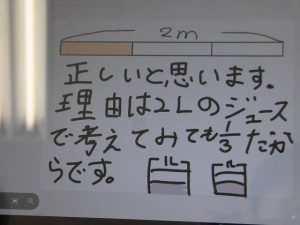 2m
正しいと思います。
理由は2Lのジュース
で考えてみても1/3だか
らです。
1L 1L